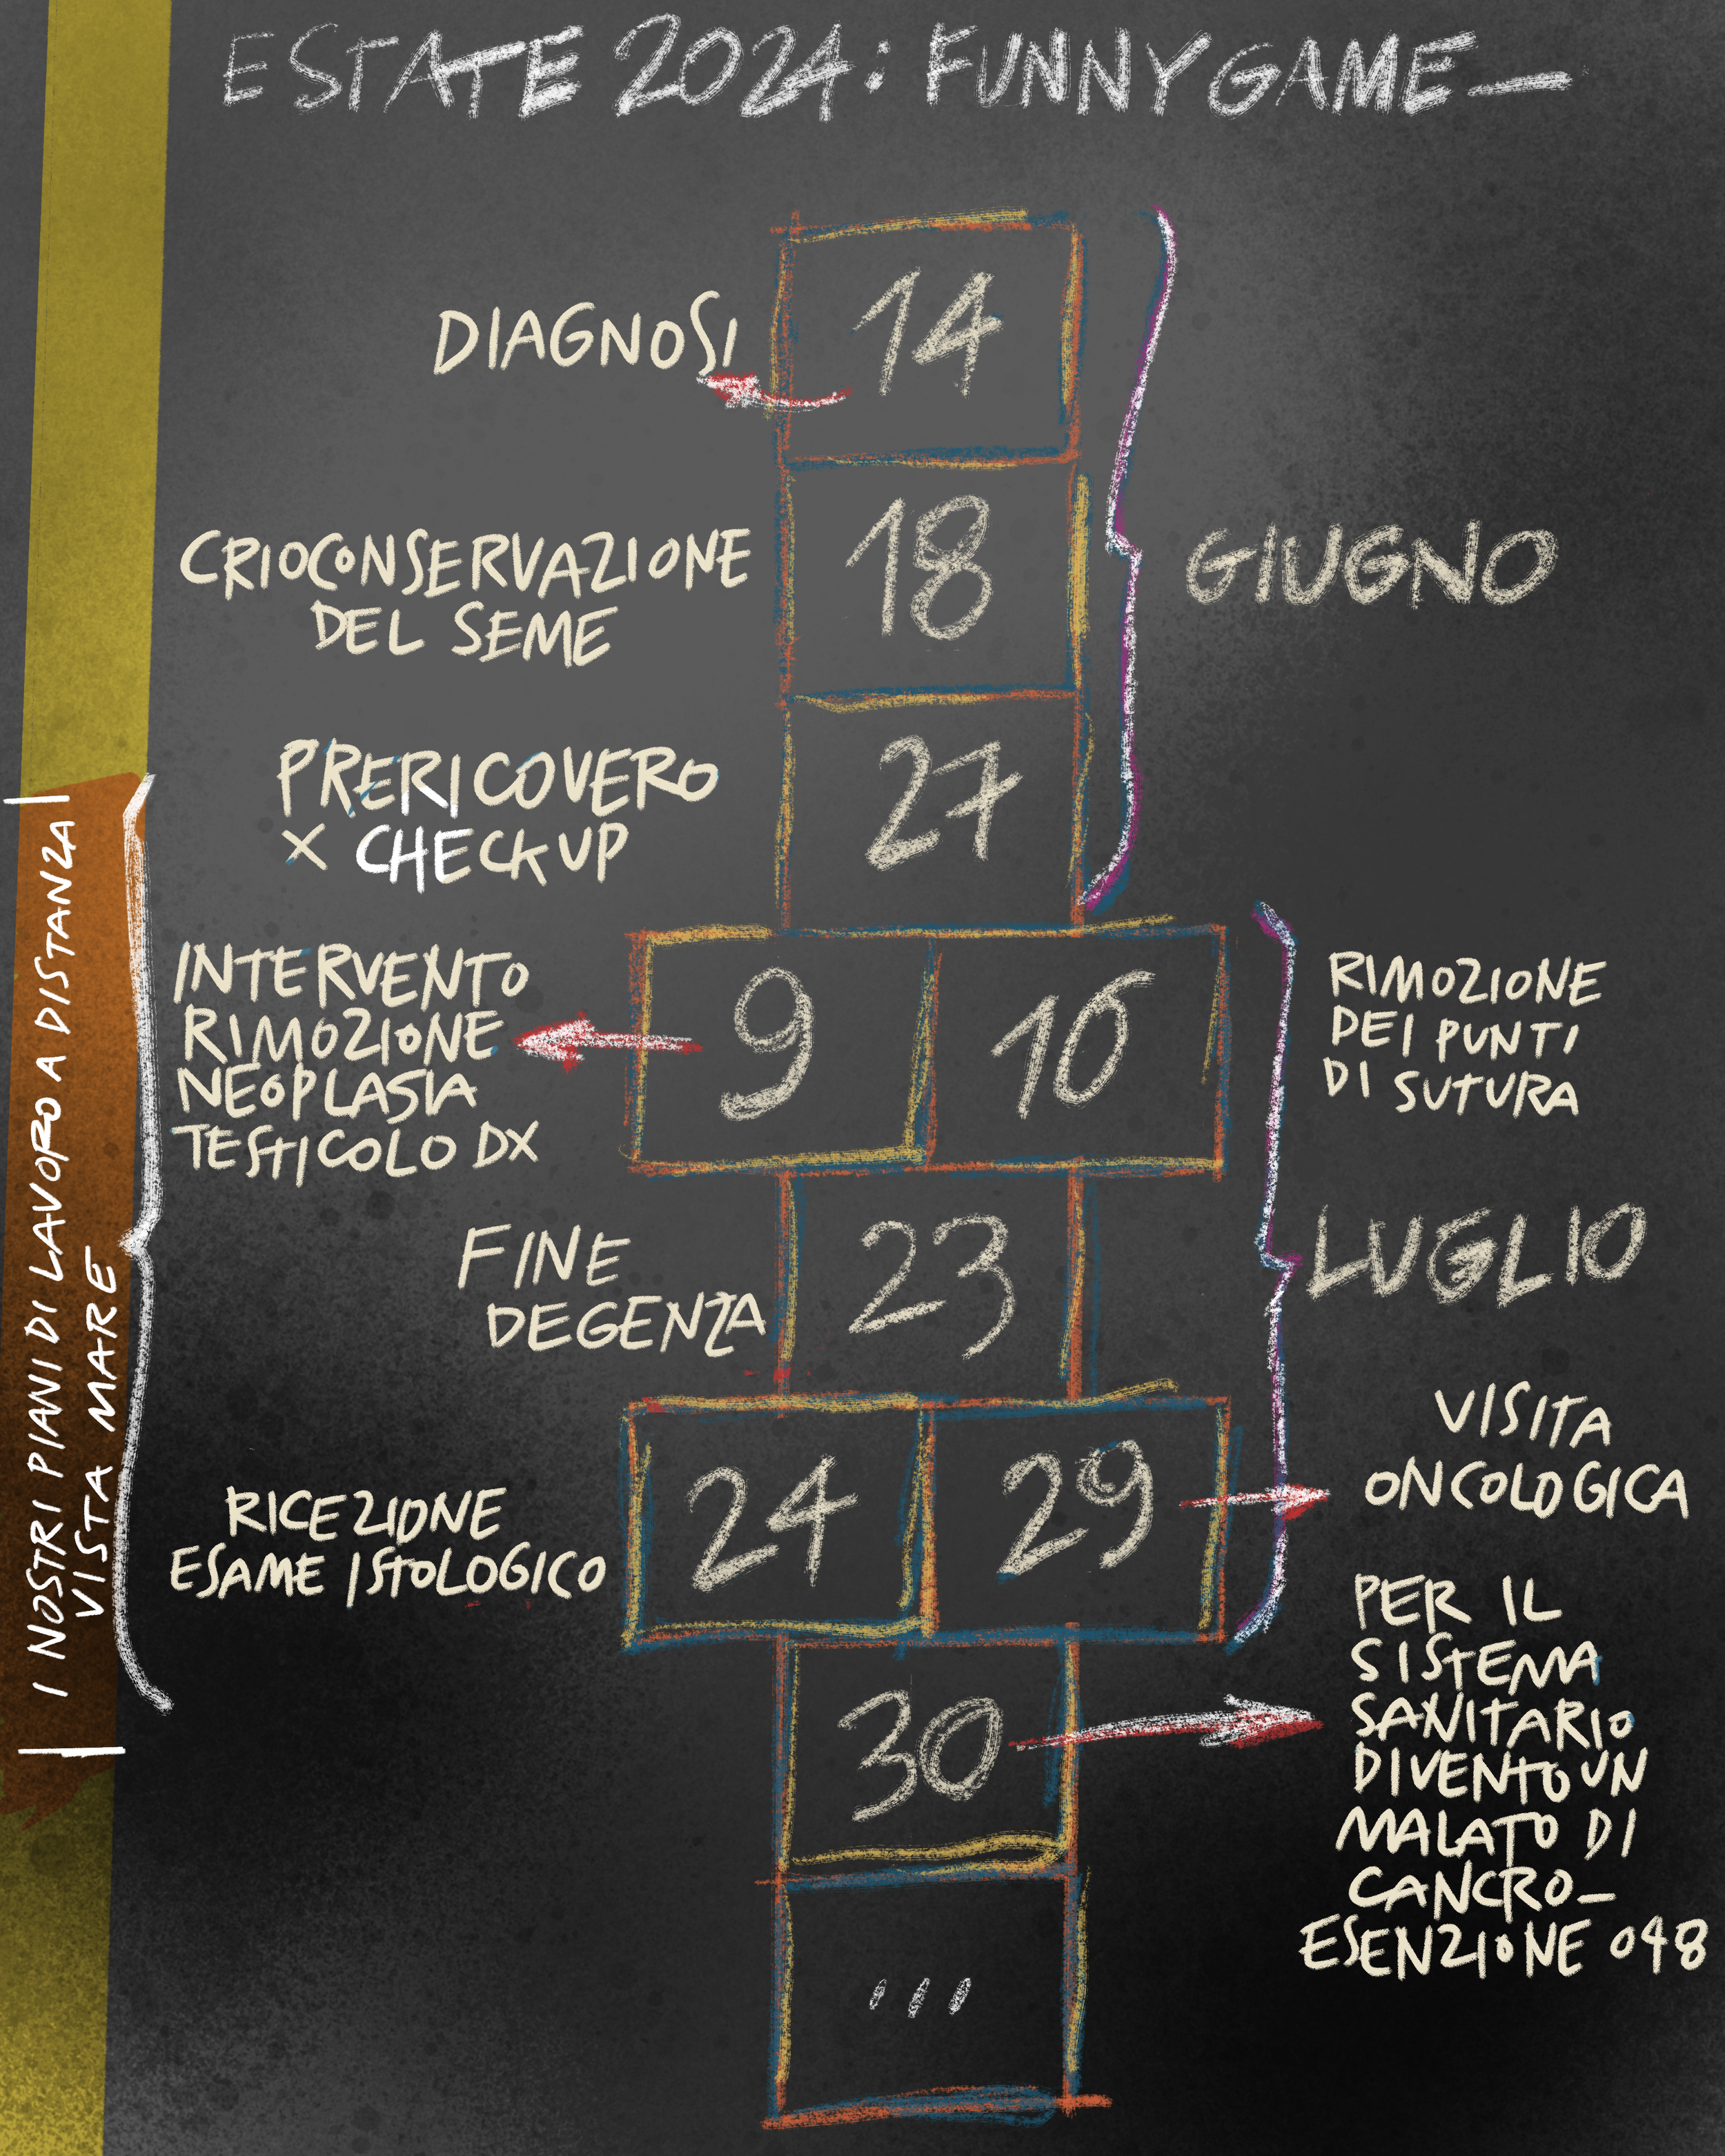 ESTATE 2024: FUNNY GAME—
14
DIAGNOSI
18
CRIOCONSERVAZIONE
DEL SEME
GIUGNO
27
PRERICOVERO
X CHECK UP
I NOSTRI PIANI DI LAVORO A DISTANZA
VISTA MARE
9
INTERVENTO
RIMOZIONE
NEOPLASIA
TESTICOLO DX
16
RIMOZIONE
DEI PUNTI
DI SUTURA
23
FINE
DEGENZA
LUGLIO
24
RICEZIONE
ESAME ISTOLOGICO
29
VISITA
ONCOLOGICA
30
PER IL
SISTEMA
SANITARIO
DIVENTO UN
MALATO DI
CANCRO—
ESENZIONE 048
...